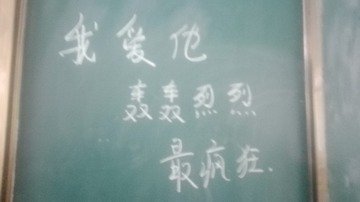 我爱他
轰轰烈烈
最疯狂.